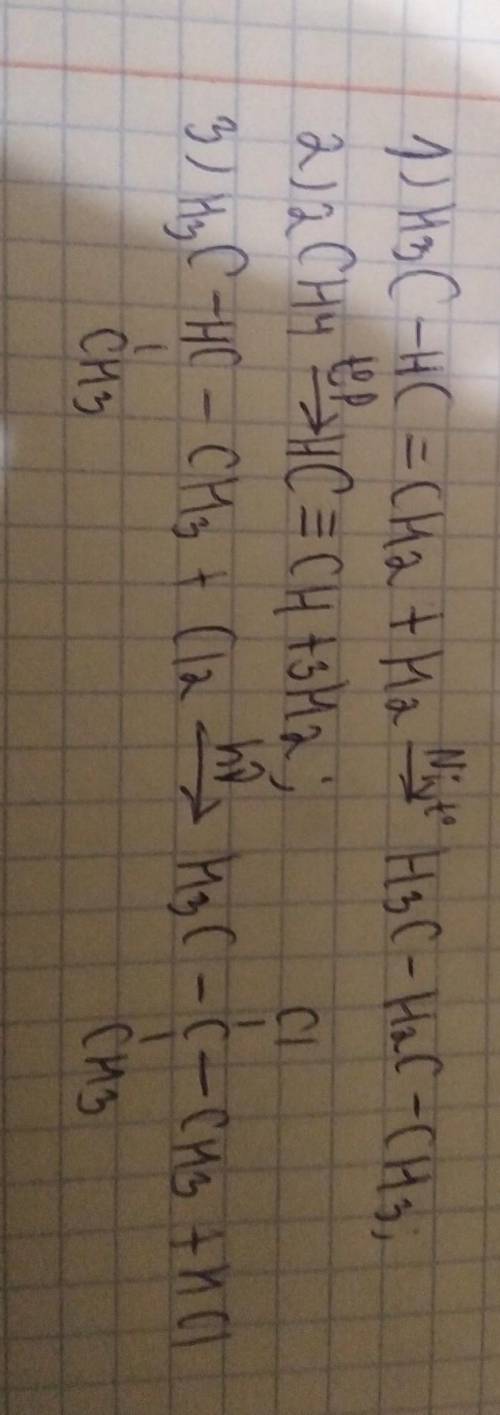 1) H3C-HC=CH2+H2 Ni, t° → H3C-H2C-CH3;
2) 2CH4 t° → HC≡CH+3H2;
Cl
3) H3C-HC-CH3+Cl2 hν → H3C-C-CH3+HCl
CH3 CH3